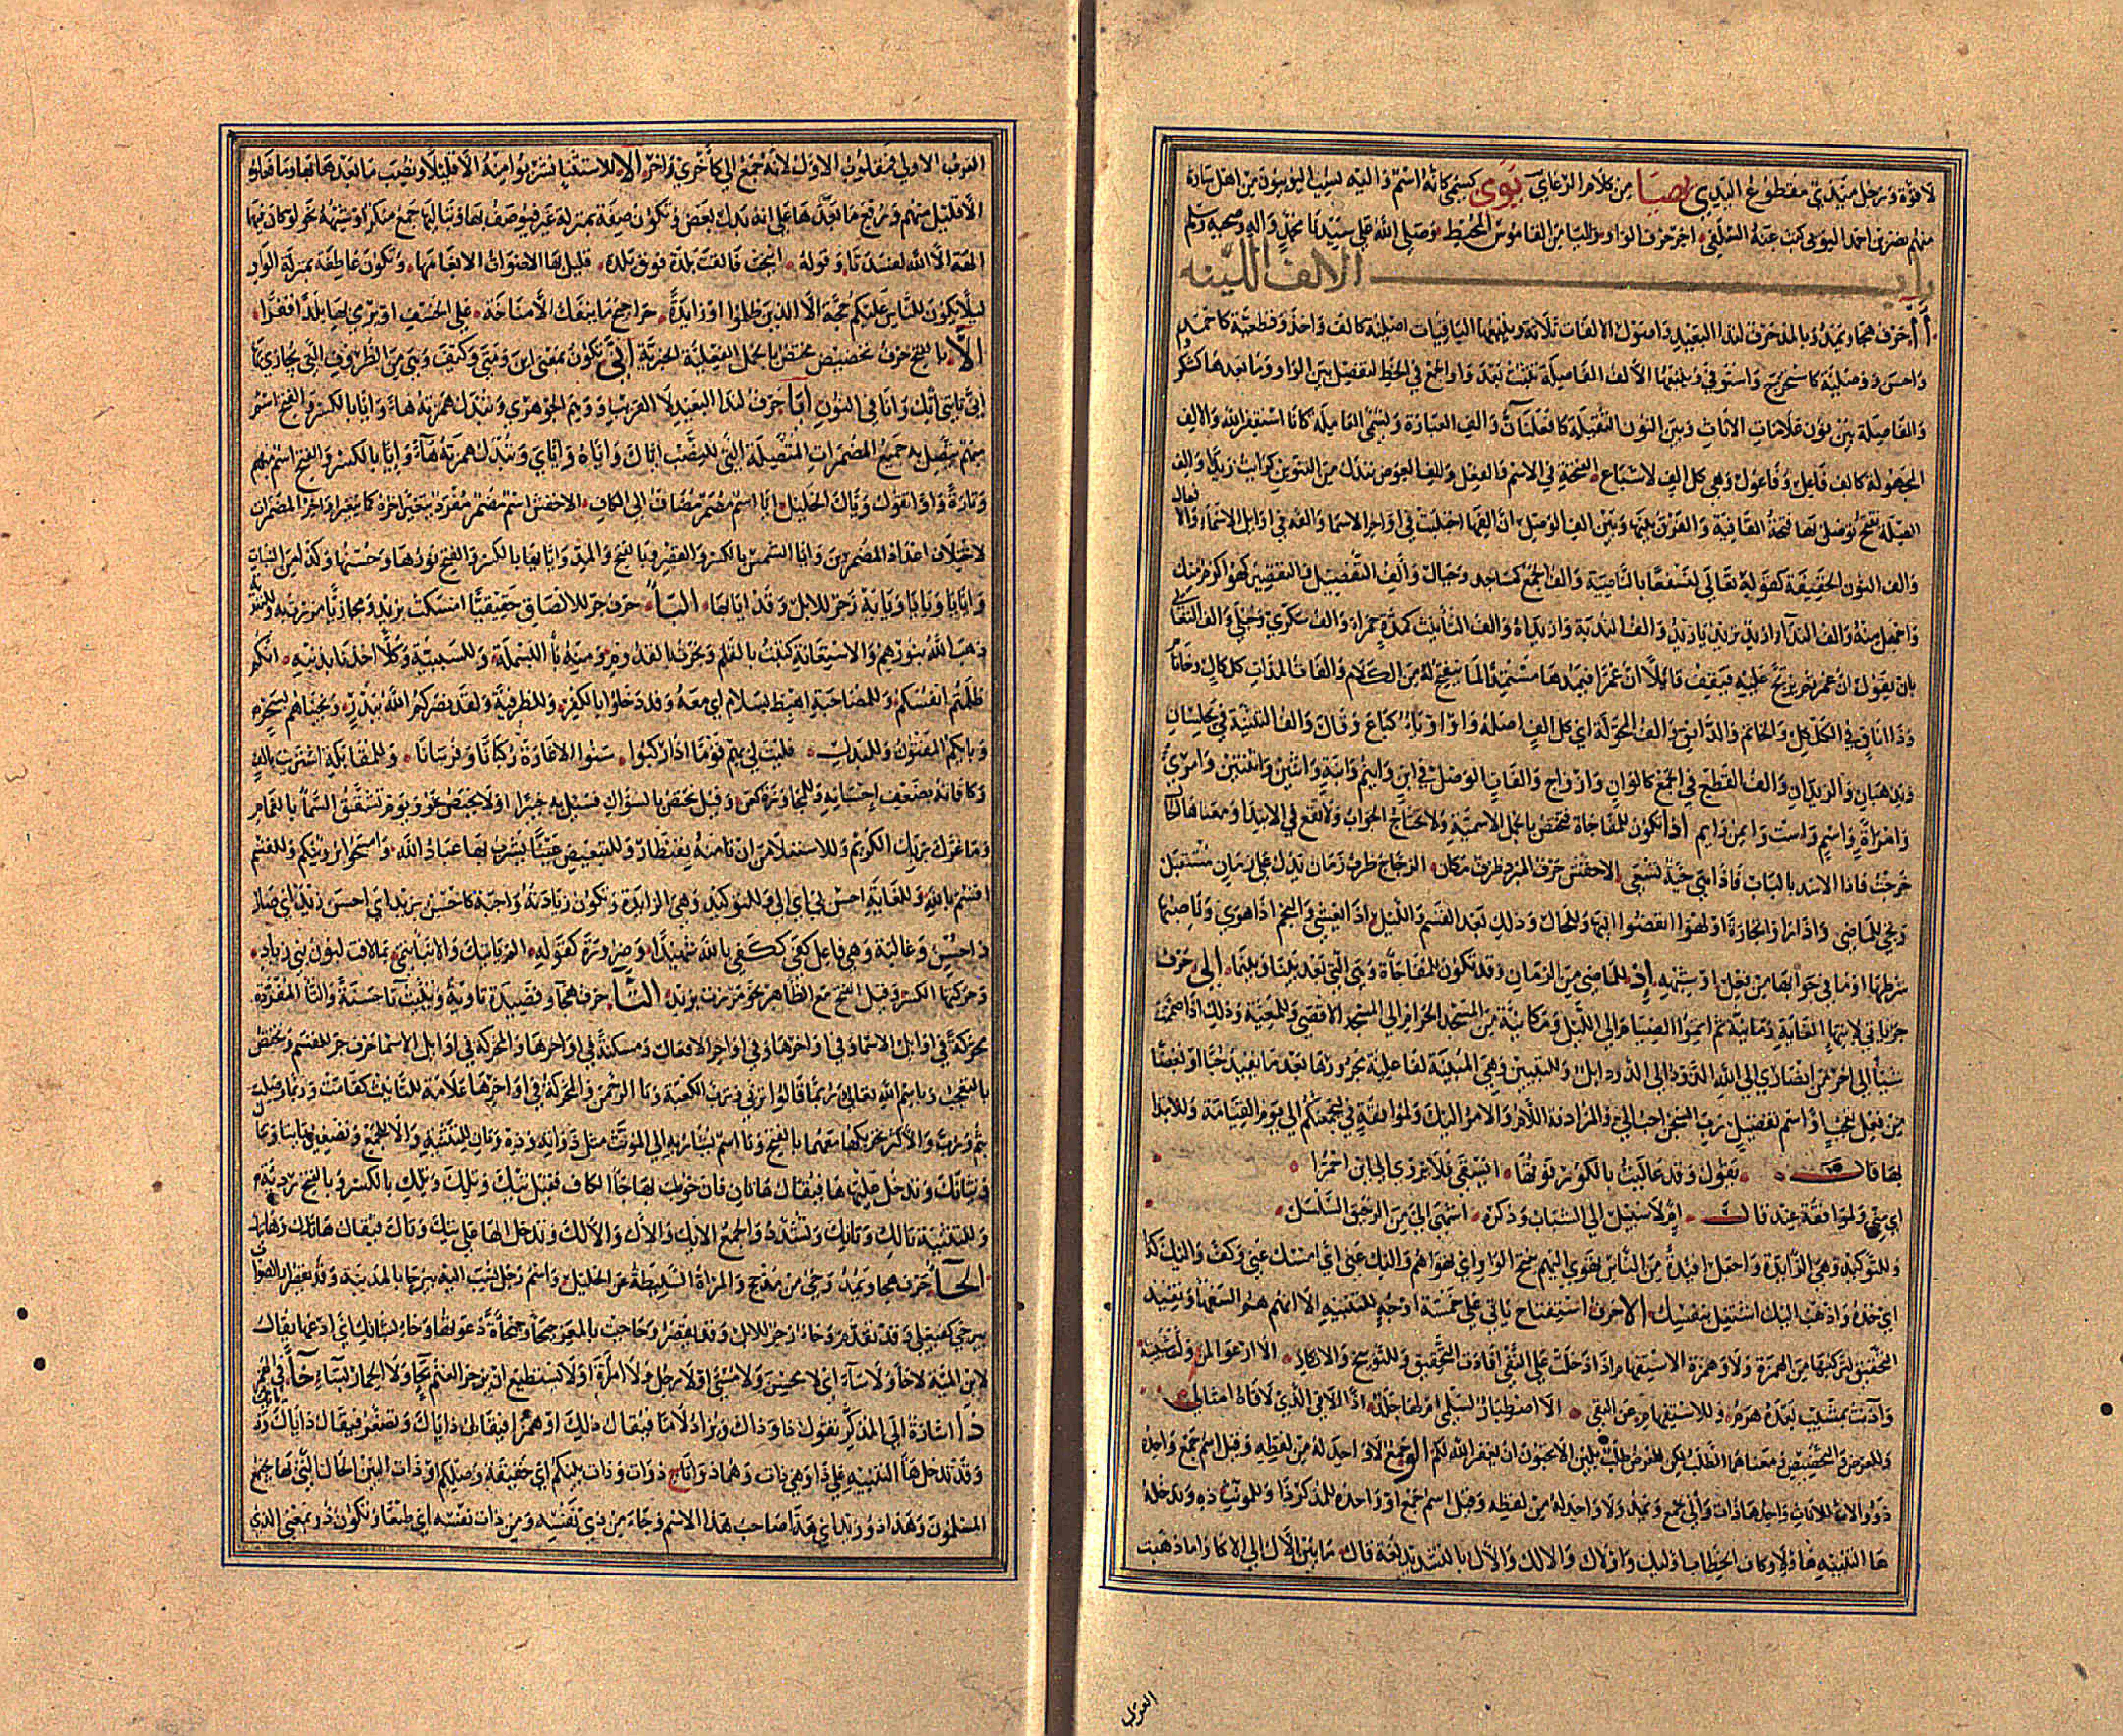 لا قوة ورجل ميدي مقطوع اليدى يصيا من كلام الرعاى يوى كسمى كانه اسم واليه نسب اليوييون من اهل ساوة
منهم نصر بن احمد اليويى كتب عنه السلفى اخر حرف الواو والياء من القاموس المحيط وصلى الله على سيدنا محمد واله وصحبه وسلم
باب الالف اللينه
آ حرف هجا ويمد وبالمد حرف لندا البعيد واصول الالفات ثلاثة ويتبعها الباقيات اصلية كالف واخذ وقطعية كاحمد
واحسن ووصلية كاستخرج واستوفى ويتبعها الالف الفاصلة تثبت بعد واو الجمع فى الخط لتفصل بين الواو وما بعدها كشكروا
والفاصلة بين نون علامات الاناث وبين النون الثقيلة كافعلنان والف العبارة وتسمى العاملة كانا استغفر الله والالف
المجهولة كالف فاعل وفاعول وهى كل الف لاشباع الفتحة فى الاسم والفعل والف العوض تبدل من التنوين كرايت زيدا والف
الصلة توصل بها فتحة القافية والفرق بينها وبين الف الوصل ان الفها اجتلبت فى اواخر الاسما والفه فى اوايل الاسماء والافعال
والف النون الخفيفة كقوله تعالى لنسفعا بالناصية والف الجمع كمساجد وجبال والف التفضيل والتقصير كهو اكرم منك
واجهل منه والف الندآ ازيد تريد يا زيد والف الندبة وازيداه والف التانيث كمدة حمراء والف سكرى وحبلى والف التعايى
بان يقول ان عمر ثم يرتج عليه فيقف قائلا ان عمرا فيمدها مستمدا لما ينفتح له من الكلام والفات المدات ككلكال وخاتام
وداناق فى الكلكل والخاتم والدانق والف المحولة اى كل الف اصله واو او ياء كباع وقال والف التثنية فى يجلسان
ويذهبان والزيدان والف القطع فى الجمع كالوان وازواج والفات الوصل فى ابن وابنم وابنة واثنين واثنتين وامرئ
وامراة واسم واست وايمن وايم اذا تكون للمفاجاة فتختص بالجمل الاسمية ولا تحتاج لجواب ولا تقع فى الابتدا ومعناها الحال
خرجت فاذا الاسد بالباب فاذا هى حية تسعى الاخفش حرف المبرد ظرف مكان الزجاج ظرف زمان يدل على زمان مستقبل
وتجى للماضى واذا راوا تجارة او لهوا انفضوا اليها وللحال وذلك بعد القسم والليل اذا يغشى والنجم اذا هوى وناصبها
شرطها او ما فى جوابها من فعل او شبهه اذ للماضى من الزمان وقد تكون للمفاجاة وهى التى تقع بعد بينا وبينما الى حرف
جر تاتى لانتها الغاية زمانية ثم اتموا الصيام الى الليل ومكانية من المسجد الحرام الى المسجد الاقصى وللمعية وذلك اذا ضممت
شيا الى اخر من انصارى الى الله الذود الى الذود ابل وللتبيين وهى المبينة لفاعلية مجرورها بعد ما يفيد حبا او بغضا
من فعل تعجب او اسم تفضيل رب السجن احب الى والمرادفة اللام والامر اليك ولموافقة فى ليجمعنكم الى يوم القيامة وللابتدا
بها قال تقول وقد عاليت بالكور فوقها ايسقى فلا يروى الى ابن احمرا
اى منى ولموافقة عند قال ام لا سبيل الى الشباب وذكره اشهى الى من الرحيق السلسل
وللتوكيد وهى الزايدة واجعل افيدة من الناس تهوى اليهم بفتح الواو اى تهواهم واليك عنى اى امسك عنى وكف واليك كذا
اى خذه واذهب اليك اشتغل بنفسك الا حرف استفتاح ياتى على خمسة اوجه للتنبيه الا انهم هم السفها وتفيد
التحقيق لتركبها من الهمزة ولا وهمزة الاستفهام اذا دخلت على النفى افادت التحقيق وللتوبيخ والانكار الا ارعوا لمن ولت شبيبته
وآذنت بمشيب بعده هرم وللاستفهام عن النفى الا اصطبار لسلمى ام لها جلد اذا الاقى الذى لاقاه امثالى
وللعرض والتحضيض ومعناهما الطلب لكن العرض طلب بلين الا تحبون ان يغفر الله لكم الو جمع لا واحد له من لفظه وقيل اسم جمع واحده
ذو والات للاناث واحدها ذات واولى جمع ويمد ولا واحد له من لفظه وقيل اسم جمع او واحده للمذكر ذا وللمونث ذه وتدخله
ها التنبيه هاولا وكاف الخطاب اوليك واولاك والالك والاّل بالتشديد لغة قال ما بين الاّل الى الاكا واما ذهبت
العرب
العرب الاولى فمقلوب الاول لانه جمع اولى كاخرى واخر الا للاستثنا فشربوا منه الا قليلا ونصب ما بعدها بها وما فعلوه
الا قليل منهم ورفع ما بعدها على انه بدل بعض وتكون صفة بمنزلة غير فيوصف بها وبتاليها جمع منكر او شبهه نحو لو كان فيهما
الهة الا الله لفسدتا وقوله انيخت فالقت بلدة فوق بلدة قليل بها الاصوات الا بغامها وتكون عاطفة بمنزلة الواو
ليلا يكون للناس عليكم حجة الا الذين ظلموا او زايدة حراجيج ما تنفك الا مناخة على الخسف او نرمى بها بلدا قفرا
الا بالفتح حرف تحضيض مختص بالجمل الفعلية الخبرية انى تكون بمعنى اين ومتى وكيف وهى من الظروف التى يجازى بها
انى تاتنى اتك وانا فى النون ايا حرف لندا البعيد لا القريب ووهم الجوهرى وتبدل همزته هاء وايا بالكسر والفتح اسم
مبهم يتصل به جميع المضمرات المتصلة التى للنصب اياك واياه واياى وتبدل همزته هآء وايا بالكسر والفتح اسم مبهم
وتارة واوا تقول وياك الخليل ايا اسم مضمر مضاف الى الكاف الاخفش اسم مضمر مفرد يتغير اخره كما يتغير اخر المضمرات
لاختلاف اعداد المضمرين وايا الشمس بالكسر والقصر وبالفتح والمد واياتها بالكسر والفتح نورها وحسنها وكذا من النبات
وايايا ويايا ويايه زجر للابل وقد ايا بها البآ حرف جر للالصاق حقيقيا امسكت بزيد ومجازيا مررت به وللتعدية
ذهب الله بنورهم وللاستعانة كتبت بالقلم ونجرت بالقدوم ومنه بآ البسملة وللسببية وكلا اخذنا بذنبه انكم
ظلمتم انفسكم وللمصاحبة اهبط بسلام اى معه وقد دخلوا بالكفر وللظرفية ولقد نصركم الله ببدر ونجيناهم بسحر
وبايكم المفتون وللبدل فليت لى بهم قوما اذا ركبوا شنوا الاغارة ركبانا وفرسانا وللمقابلة اشتريته بالف
وكافاته بضعف احسانه وللمجاوزة كعن وقيل تختص بالسؤال فسئل به خبيرا او لا تختص نحو ويوم تشقق السما بالغمام
وما غرك بربك الكريم وللاستعلا من ان تامنه بقنطار وللتبعيض عينا يشرب بها عباد الله وامسحوا برؤسكم وللقسم
اقسم بالله وللغاية احسن بى اى الى وللتوكيد وهى الزايدة وتكون زيادته واجبة كاحسن بزيد اى احسن زيد اى صار
ذا حسن وغالبة وهى فاعل كفى ككفى بالله شهيدا وضرورة كقوله الم ياتيك والانباء تنمى بما لاقت لبون بنى زياد
وحركتها الكسر وقيل الفتح مع الظاهر نحو مر بزيد التآ حرف هجا وقصيدة تاوية وتيتت تآ حسنة والتآ المفردة
محركة فى اوايل الاسما وفى اواخرها وفى اواخر الافعال ومسكنة فى اواخرها والمحركة فى اوايل الاسما حرف جر للقسم وتختص
بالتعجب وباسم الله تعالى وربما قالوا تربى وترب الكعبة وتا الرحمن والمحركة فى اواخرها علامة للتانيث كقامت وربما وصلت
بثم ورب والاكثر تحريكها معهما بالفتح وتا اسم يشار به الى المونث مثل ذا وته وذه وتان للتثنية والاء للجمع وتصغيرتا تيا وتياك
وتيالك وتدخل عليها ها فيقال هاتان فان خوطب بها جاء الكاف فقيل تيك وتلك وتلك بالكسر وبالفتح رديئة
وللتثنية تالك وتانك وتشدد والجمع اولئك والاك والالك وتدخل الها على تيك وتاك فيقال هاتيك وهاتاك
الحآ حرف هجا ويمد وحى من مذحج والمراة السليطة عن الخليل واسم رجل نسب اليه بيرحا بالمدينة وقد يقصر والصواب
بيرحى كفيعلى وقد تقدم وحاء زجر للابل وقد يقصر وحاحيت بالمعز حيحا وحيحاة دعوتها وحاء بضانك اى ادعها يقال
لابن المية لا حآ ولا سآء اى لا محسن ولا مسئ او لا رجل ولا امرأة او لا يستطيع ان يزجر الغنم بحآ ولا الحمار بسآء خآ فى الهمز
ذا اشارة الى المذكر تقول ذا وذاك ويزاد لاما فيقال ذلك او همزا فيقال ذاياك ويصغر فيقال ذاياك وذ
وقد تدخل ها التنبيه على ذا وهى ذات وهما ذواتا ج ذوات وذات بينكم اى حقيقة وصلكم او ذات البين الحال التى بها يجتمع
المسلمون وهذا ذو زيد اى هذا صاحب هذا الاسم وجاء من ذى نفسه ومن ذات نفسه اى طبعا وتكون ذو بمعنى الذى